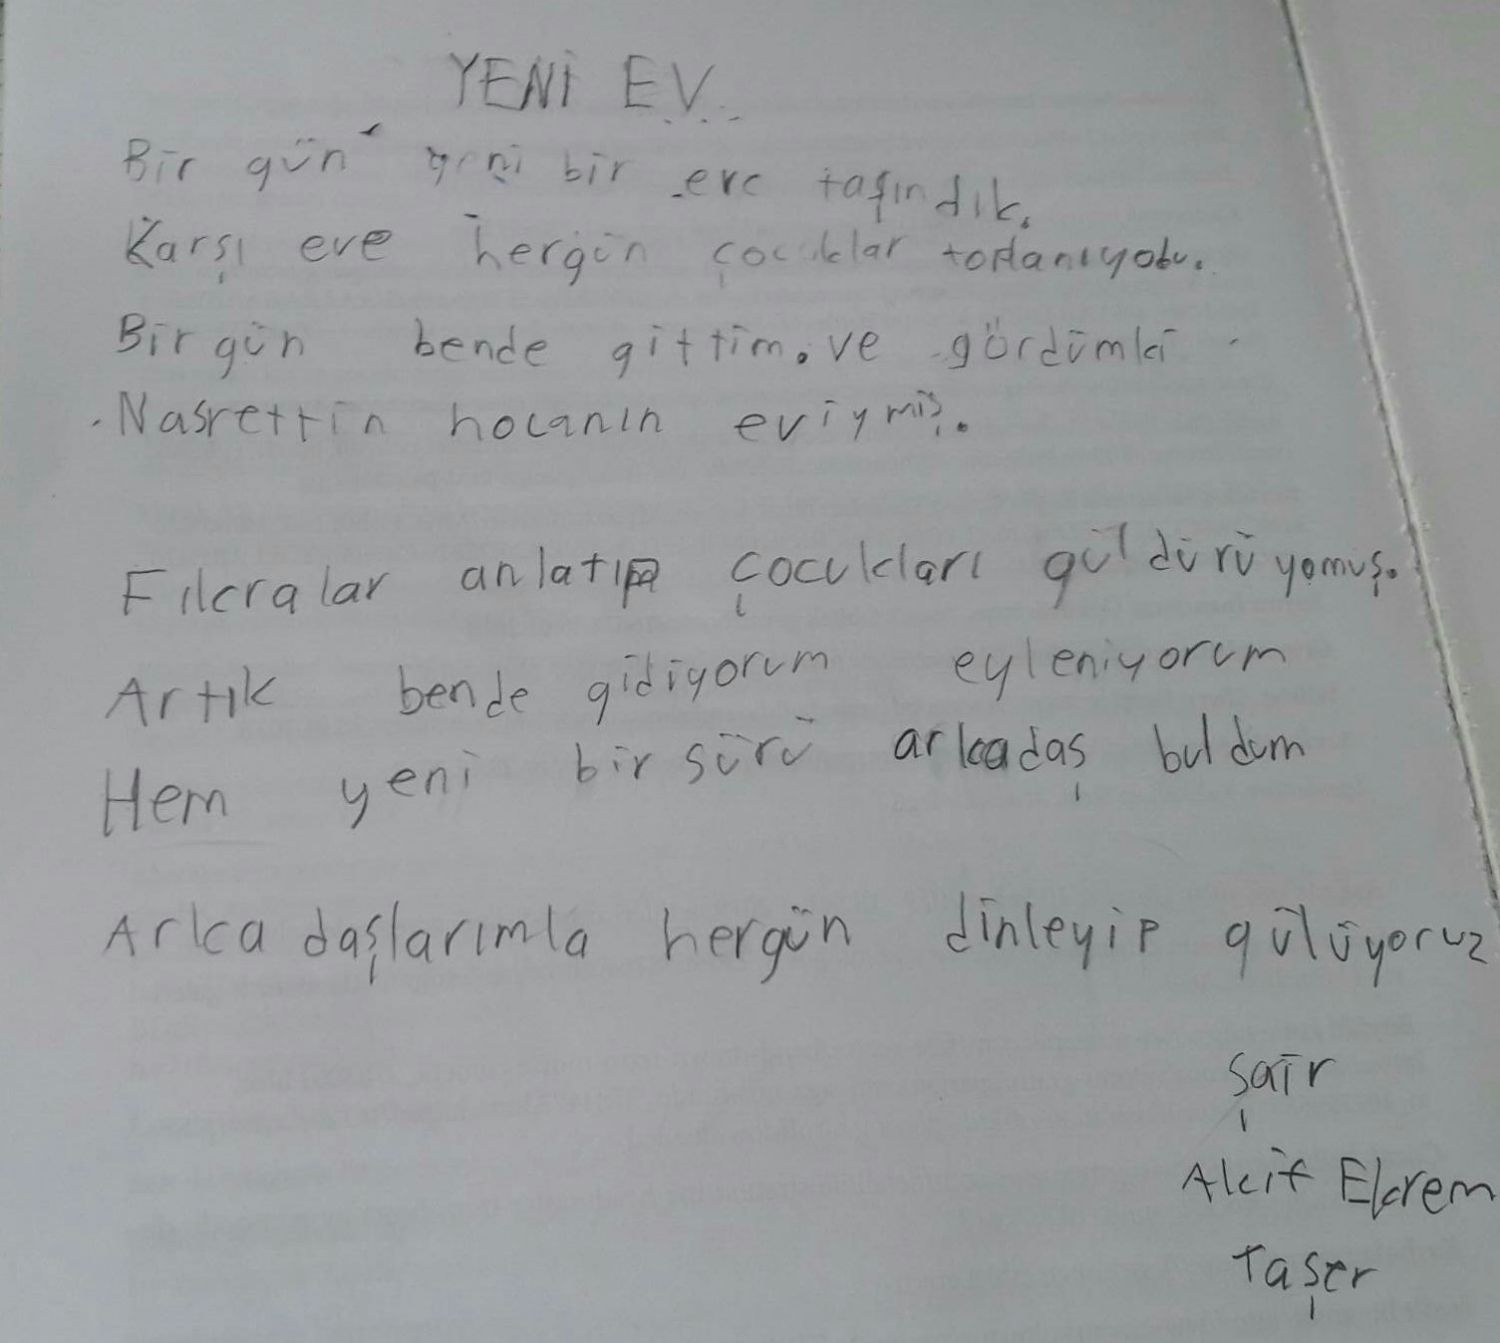 YENİ EV
Bir gün yeni bir eve taşındık.
Karşı eve hergün çocuklar toplanıyodu.
Bir gün bende gittim. ve gördümki
Nasrettin hocanın eviymiş.
Fıkralar anlatıp çocukları güldürüyomuş.
Artık bende gidiyorum eyleniyorum
Hem yeni bir sürü arkadaş buldum
Arkadaşlarımla hergün dinleyip gülüyoruz
şair
Akif Ekrem
Taşer